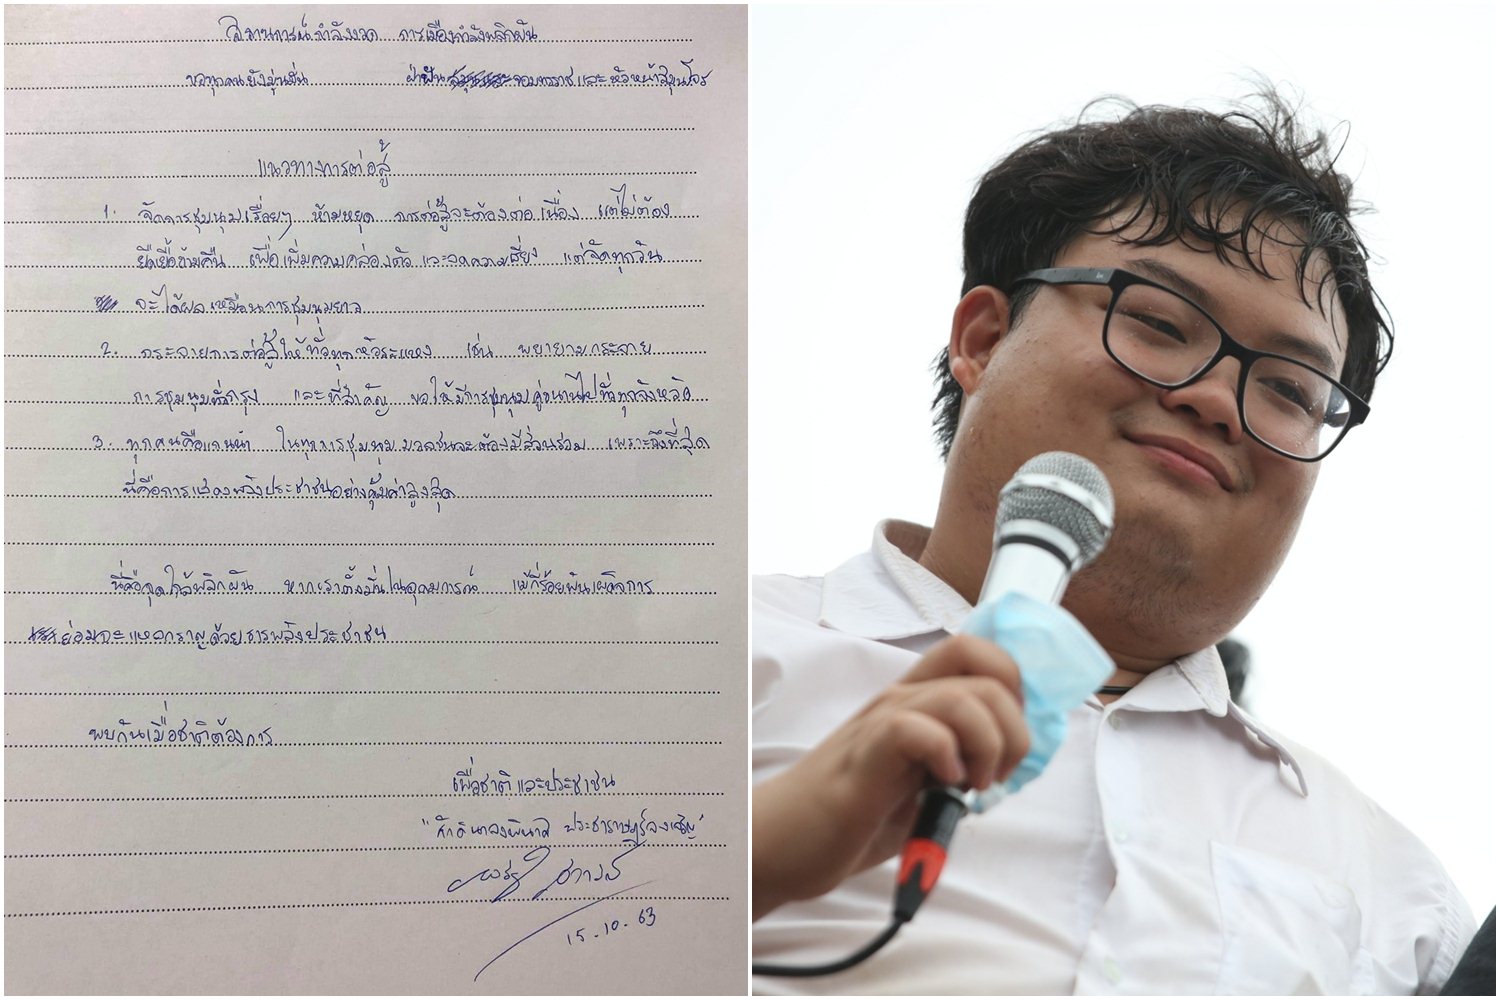 สถานการณ์กำลังงวด การเมืองกำลังพลิกผัน
ขอทุกคนยังมุ่งมั่น ฝ่าฟัน จอมทรราช และหัวหน้าสมุนโจร
แนวทางการต่อสู้
1. จัดการชุมนุมเรื่อยๆ ห้ามหยุด การต่อสู้จะต้องต่อเนื่อง แต่ไม่ต้อง
ยืดเยื้อข้ามคืน เพื่อเพิ่มความคล่องตัว และลดความเสี่ยง แต่จัดทุกวัน
จะได้ผลเหมือนการชุมนุมยาว
2. กระจายการต่อสู้ให้ทั่วทุกหัวระแหง เช่น พยายามกระจาย
การชุมนุมทั่วกรุง และที่สำคัญ ขอให้มีการชุมนุมคู่ขนานไปทั่วทุกจังหวัด
3. ทุกคนคือแกนนำ ในทุกการชุมนุม มวลชนจะต้องมีส่วนร่วม เพราะถึงที่สุด
นี่คือการแสดงพลังประชาชนอย่างคุ้มค่าสูงสุด
นี่คือจุดใกล้พลิกผัน หากเราตั้งมั่นในอุดมการณ์ แม้กี่ร้อยพันเผด็จการ
ย่อมจะแหลกราญด้วยธารพลังประชาชน
พบกันเมื่อชาติต้องการ
เพื่อชาติ และประชาชน
"ศักดินาจงพินาศ ประชาราษฎร์จงเจริญ"
15.10.63